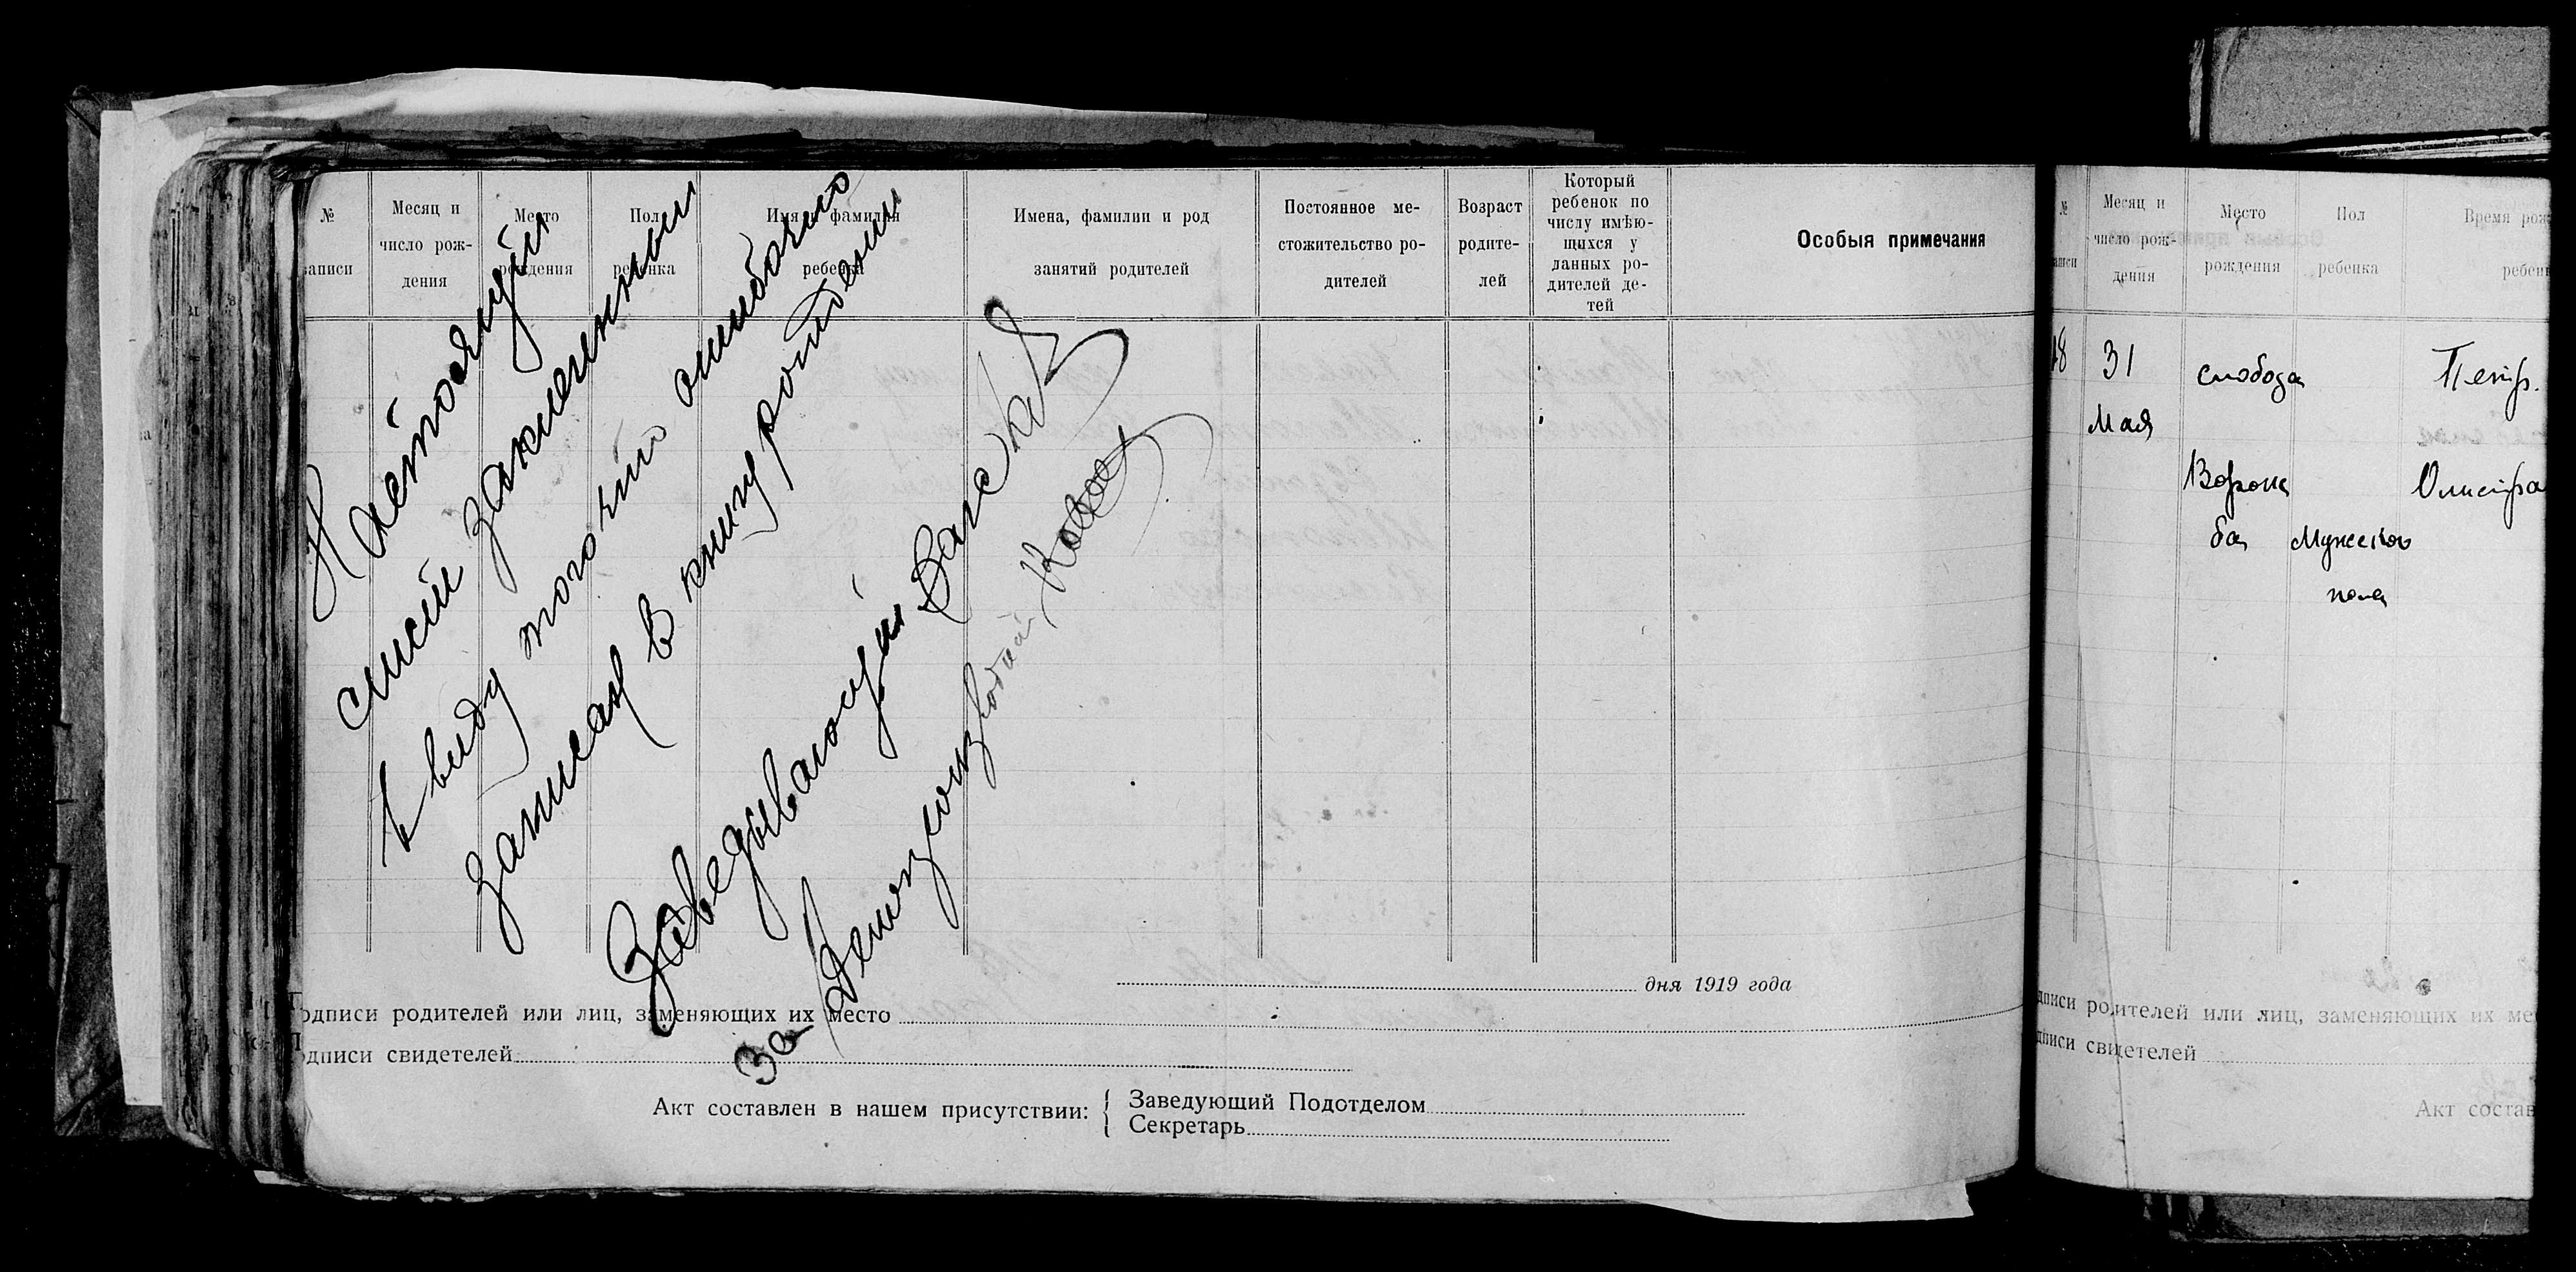 № записи
Месяц и число рождения
Место рождения
Пол ребенка
Имя и фамилия ребенка
Имена, фамилии и род занятий родителей
Постоянное местожительство родителей
Возраст родителей
Который ребенок по числу имѣющихся у данных родителей детей
Особыя примечания
Настоящий
лист заключенный
в виду того что ошибочно
записан в книгу рождений
Заведывающий
За
дня 1919 года
Подписи родителей или лиц, заменяющих их место
Подписи свидетелей
Акт составлен в нашем присутствии:
Заведующий Подотделом
Секретарь
№
Месяц и число рождения
Место рождения
Пол ребенка
Время рож
ребен
18
31
Мая
слобода
Мужского
пола
Петр.
дписи родителей или лиц, заменяющих их ме
дписи свидетелей
Акт состав